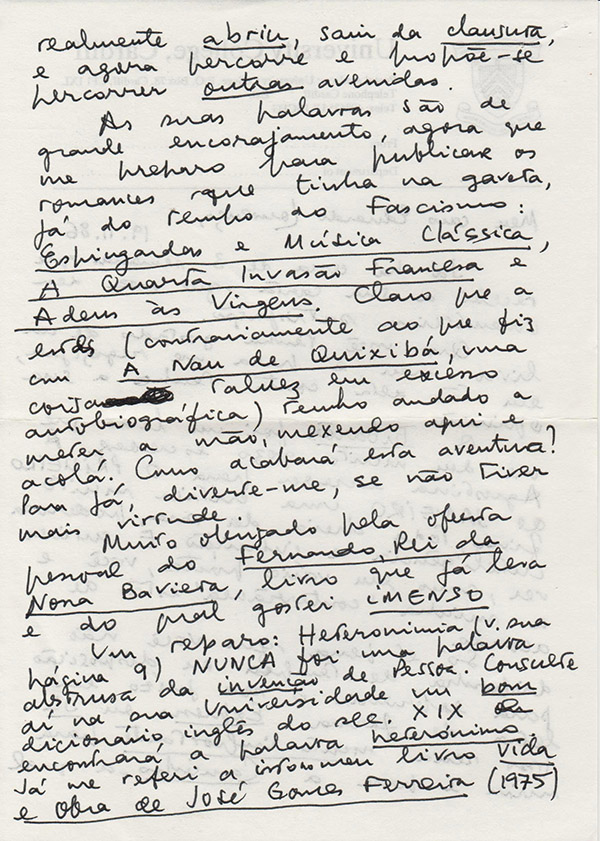 realmente abriu, saiu da clausura,
e agora percorre e propõe-se
percorrer outras avenidas.
As suas palavras são de
grande encorajamento, agora que
me preparo para publicar os
romances que tinha na gaveta,
já do tempo do Fascismo:
Espingardas e Música Clássica,
A Quarta Invasão Francesa e
Adeus às Virgens. Claro que a
estes (contrariamente ao que fiz
com A Nau de Quixibá, uma
coisa talvez em excesso
autobiográfica) tenho andado a
meter a mão, mexendo aqui e
acolá. Como acabará esta aventura?
Para já, diverte-me, se não tiver
mais virtude.
Muito obrigado pela oferta
pessoal do Fernando, Rei da
Nossa Baviera, livro que já lera
e do qual gostei IMENSO
Um reparo: Heteronimia (v. sua
página 9) NUNCA foi uma palavra
abstrusa da invenção de Pessoa. Consulte
aí na sua Universidade um bom
dicionário inglês do séc. XIX
encontrará a palavra heterónimo.
Já me referi a isto no meu livro Vida
e Obra de José Gomes Ferreira (1975)